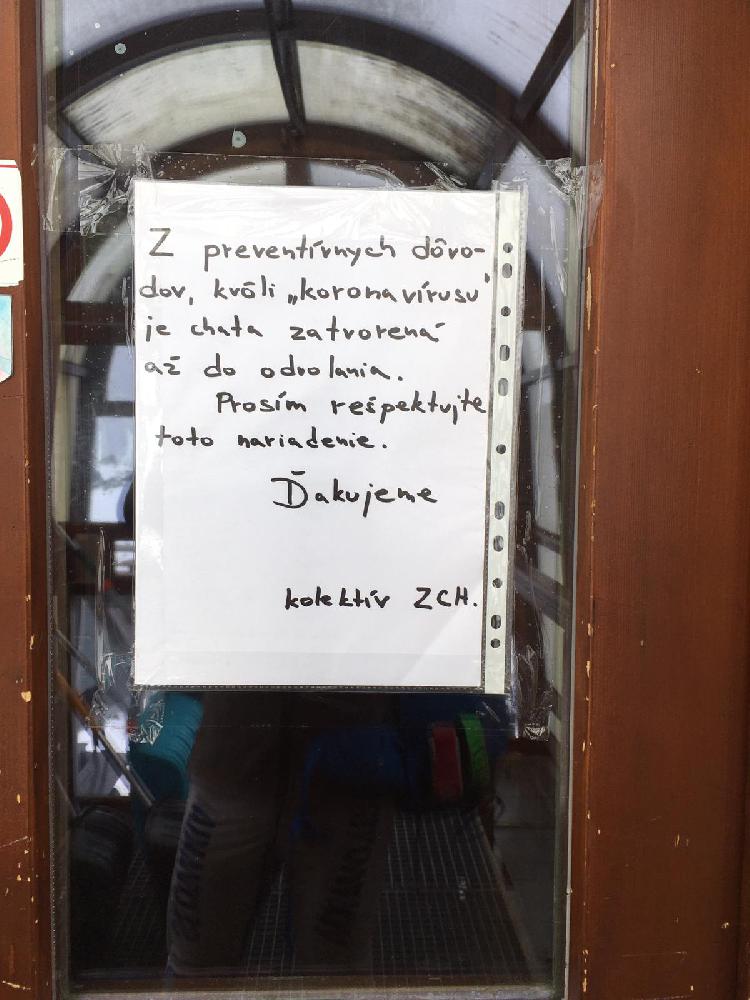 Z preventívnych dôvo-
dov, kvôli „koronavírusu"
je chata zatvorená
až do odvolania.
Prosím rešpektujte
toto nariadenie.
Ďakujeme
kolektív ZCH.